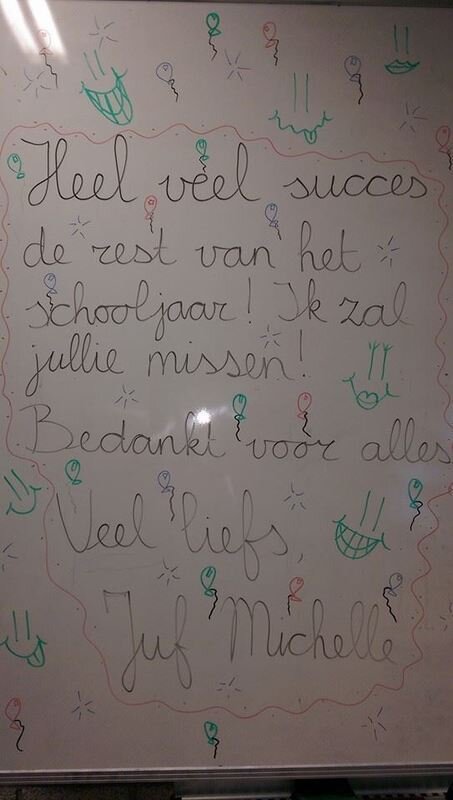 Heel veel succes
de rest van het
schooljaar! Ik zal
jullie missen!
Bedankt voor alles
Veel liefs,
Juf Michelle